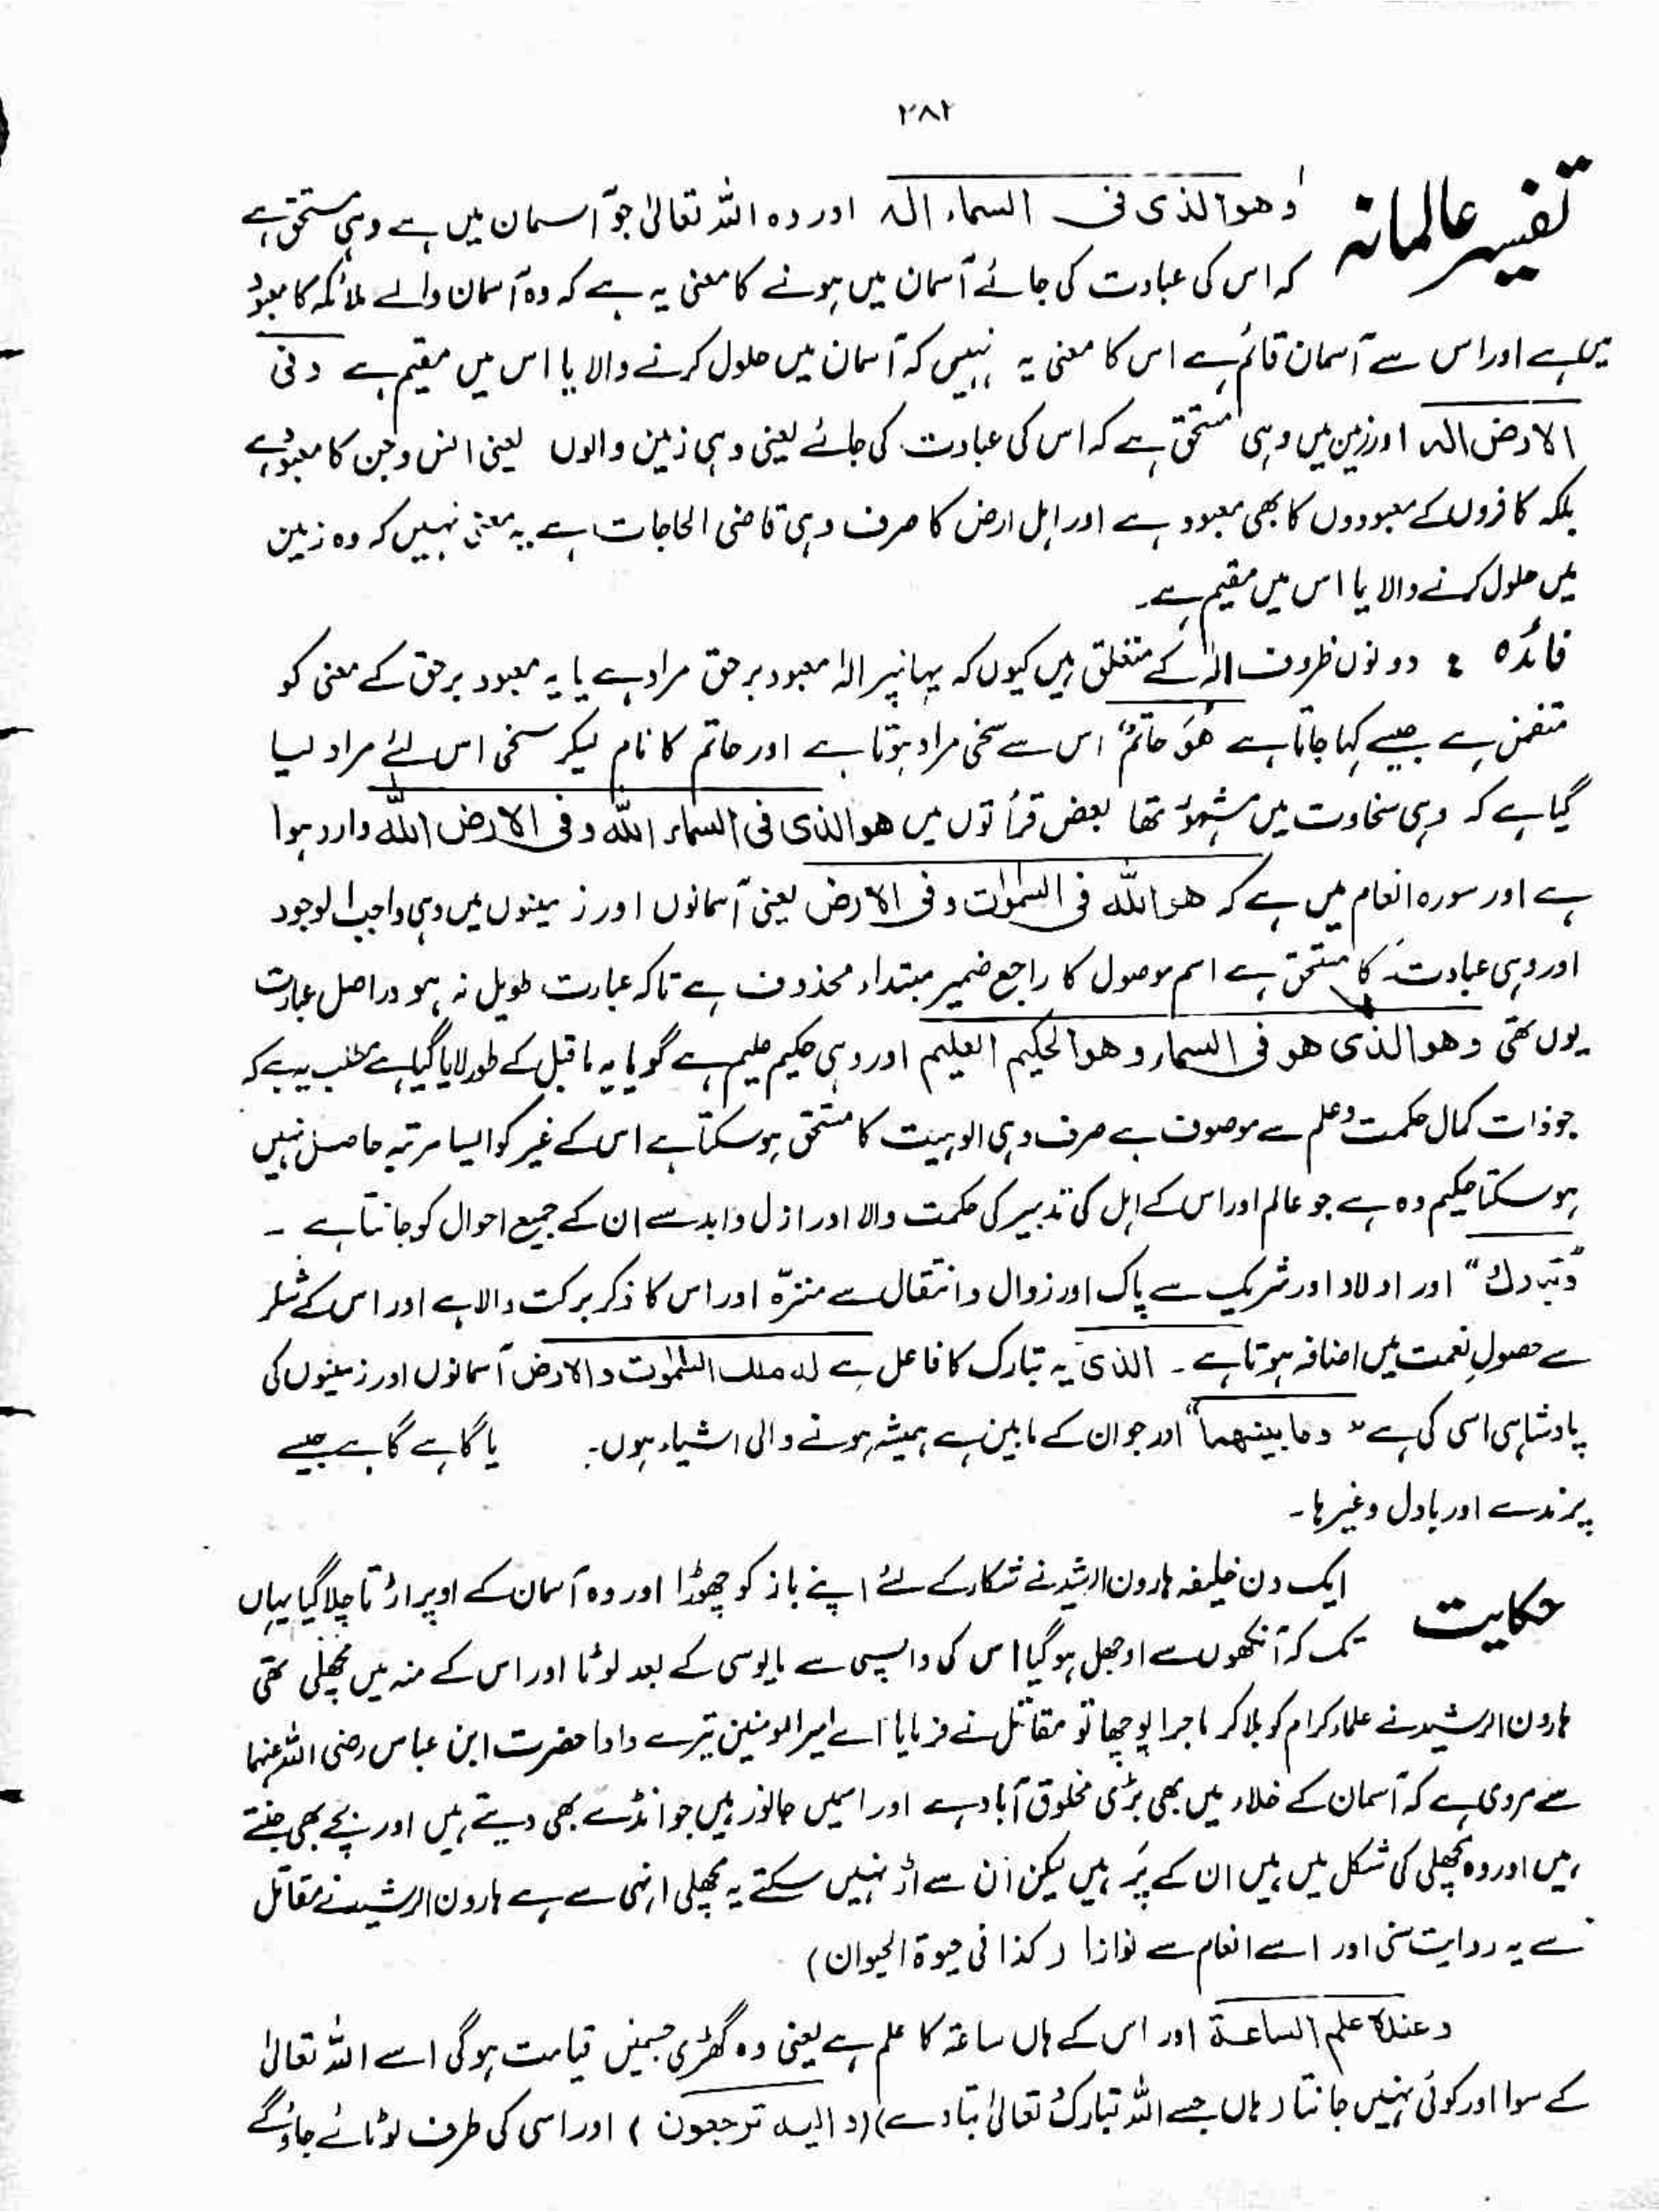 ۲۸۲
تفسیر عالمانہ
وھوالذی فی السماء الہ اور وہ اللہ تعالیٰ جو آسمان میں ہے وہی مستحق ہے
کہ اس کی عبادت کی جائے آسمان میں ہونے کا معنی یہ ہے کہ وہ آسمان والے ملائکہ کا معبود
ہے اور اس سے آسمان قائم ہے اس کا معنی یہ نہیں کہ آسمان میں حلول کرنے والا یا اس میں مقیم ہے وفی
الارض الہ اور زمین میں وہی مستحق ہے کہ اس کی عبادت کی جائے یعنی وہی زمین والوں یعنی انس و جن کا معبود ہے
بلکہ کافروں کے معبودوں کا بھی معبود ہے اور اہل ارض کا صرف وہی قاضی الحاجات ہے یہ معنی نہیں کہ وہ زمین
میں حلول کرنے والا یا اس میں مقیم ہے۔
فائدہ : دونوں ظروف الہٰ کے متعلق ہیں کیوں کہ یہانپر الہٰ معبود برحق مراد ہے یا یہ معبود برحق کے معنی کو
متضمن ہے جیسے کہا جاتا ہے ھُوَ حاتمٌ اس سے سخی مراد ہوتا ہے اور حاتم کا نام لیکر سخی اس لئے مراد لیا
گیا ہے کہ وہی سخاوت میں مشہور تھا بعض قرأتوں میں ھوالذی فی السماء اللہ وفی الارض اللہ وارد ہوا
ہے اور سورہ انعام میں ہے کہ ھواللہ فی السمٰوٰت وفی الارض یعنی آسمانوں اور زمینوں میں وہی واجب الوجود
اور وہی عبادت کا مستحق ہے اسم موصول کا راجع ضمیر مبتداء محذوف ہے تاکہ عبارت طویل نہ ہو دراصل عبارت
یوں تھی وھوالذی ھو فی السماء وھوالحکیم العلیم اور وہی حکیم علیم ہے گویا یہ ماقبل کے طور لایا گیا ہے مطلب یہ ہے کہ
جو ذات کمال حکمت و علم سے موصوف ہے صرف وہی الوہیت کا مستحق ہوسکتا ہے اس کے غیر کو ایسا مرتبہ حاصل نہیں
ہوسکتا حکیم وہ ہے جو عالم اور اس کے اہل کی تدبیر کی حکمت والا اور ازل و ابد سے ان کے جمیع احوال کو جانتا ہے ۔
”وتبٰرک“ اور اولاد اور شریک سے پاک اور زوال و انتقال سے منزّہ اور اس کا ذکر برکت والا ہے اور اس کے شکر
سے حصولِ نعمت میں اضافہ ہوتا ہے ۔ الذی یہ تبارک کا فاعل ہے لہ ملک السمٰوٰت والارض آسمانوں اور زمینوں کی
بادشاہی اسی کی ہے ”وما بینھما“ اور جو ان کے مابین ہے ہمیشہ ہونے والی اشیاء ہوں۔ یا گاہے گاہے جیسے
پرندے اور بادل وغیرہا ۔
حکایت
ایک دن خلیفہ ہارون الرشید نے شکار کے لئے اپنے باز کو چھوڑا اور وہ آسمان کے اوپر اڑتا چلا گیا یہاں
تک کہ آنکھوں سے اوجھل ہو گیا اس کی واپسی سے مایوسی کے بعد لوٹا اور اس کے منہ میں مچھلی تھی
ہارون الرشید نے علماء کرام کو بلا کر ماجرا پوچھا تو مقاتل نے فرمایا اے امیر المومنین تیرے دادا حضرت ابن عباس رضی اللہ عنہما
سے مروی ہے کہ آسمان کے خلاء میں بھی بڑی مخلوق آباد ہے اور اسمیں جانور ہیں جو انڈے بھی دیتے ہیں اور بچے بھی جنتے
ہیں اور وہ مچھلی کی شکل میں ہیں ان کے پَر ہیں لیکن اُن سے اڑ نہیں سکتے یہ مچھلی انہی سے ہے ہارون الرشید نے مقاتل
سے یہ روایت سنی اور اسے انعام سے نوازا (کذا فی حیوۃ الحیوان)
وعندہٗ علم الساعۃ اور اس کے ہاں ساعۃ کا علم ہے یعنی وہ گھڑی جسمیں قیامت ہوگی اسے اللہ تعالیٰ
کے سوا اور کوئی نہیں جانتا (ہاں جسے اللہ تبارک تعالیٰ بتا دے) (والیہ ترجعون) اور اسی کی طرف لوٹائے جاؤ گے